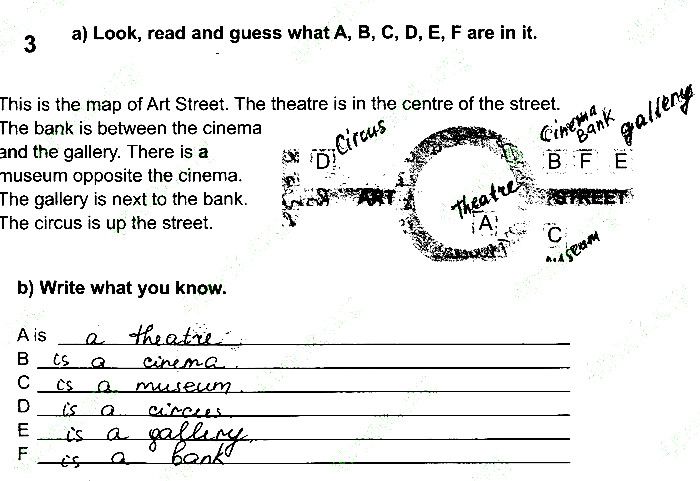 3 a) Look, read and guess what A, B, C, D, E, F are in it.
This is the map of Art Street. The theatre is in the centre of the street.
The bank is between the cinema
and the gallery. There is a
museum opposite the cinema.
The gallery is next to the bank.
The circus is up the street.
D Circus
ART
Theatre
A
Cinema Bank gallery
B F E
STREET
C
museum
b) Write what you know.
A is a theatre.
B is a cinema.
C is a museum.
D is a circus.
E is a gallery.
F is a bank